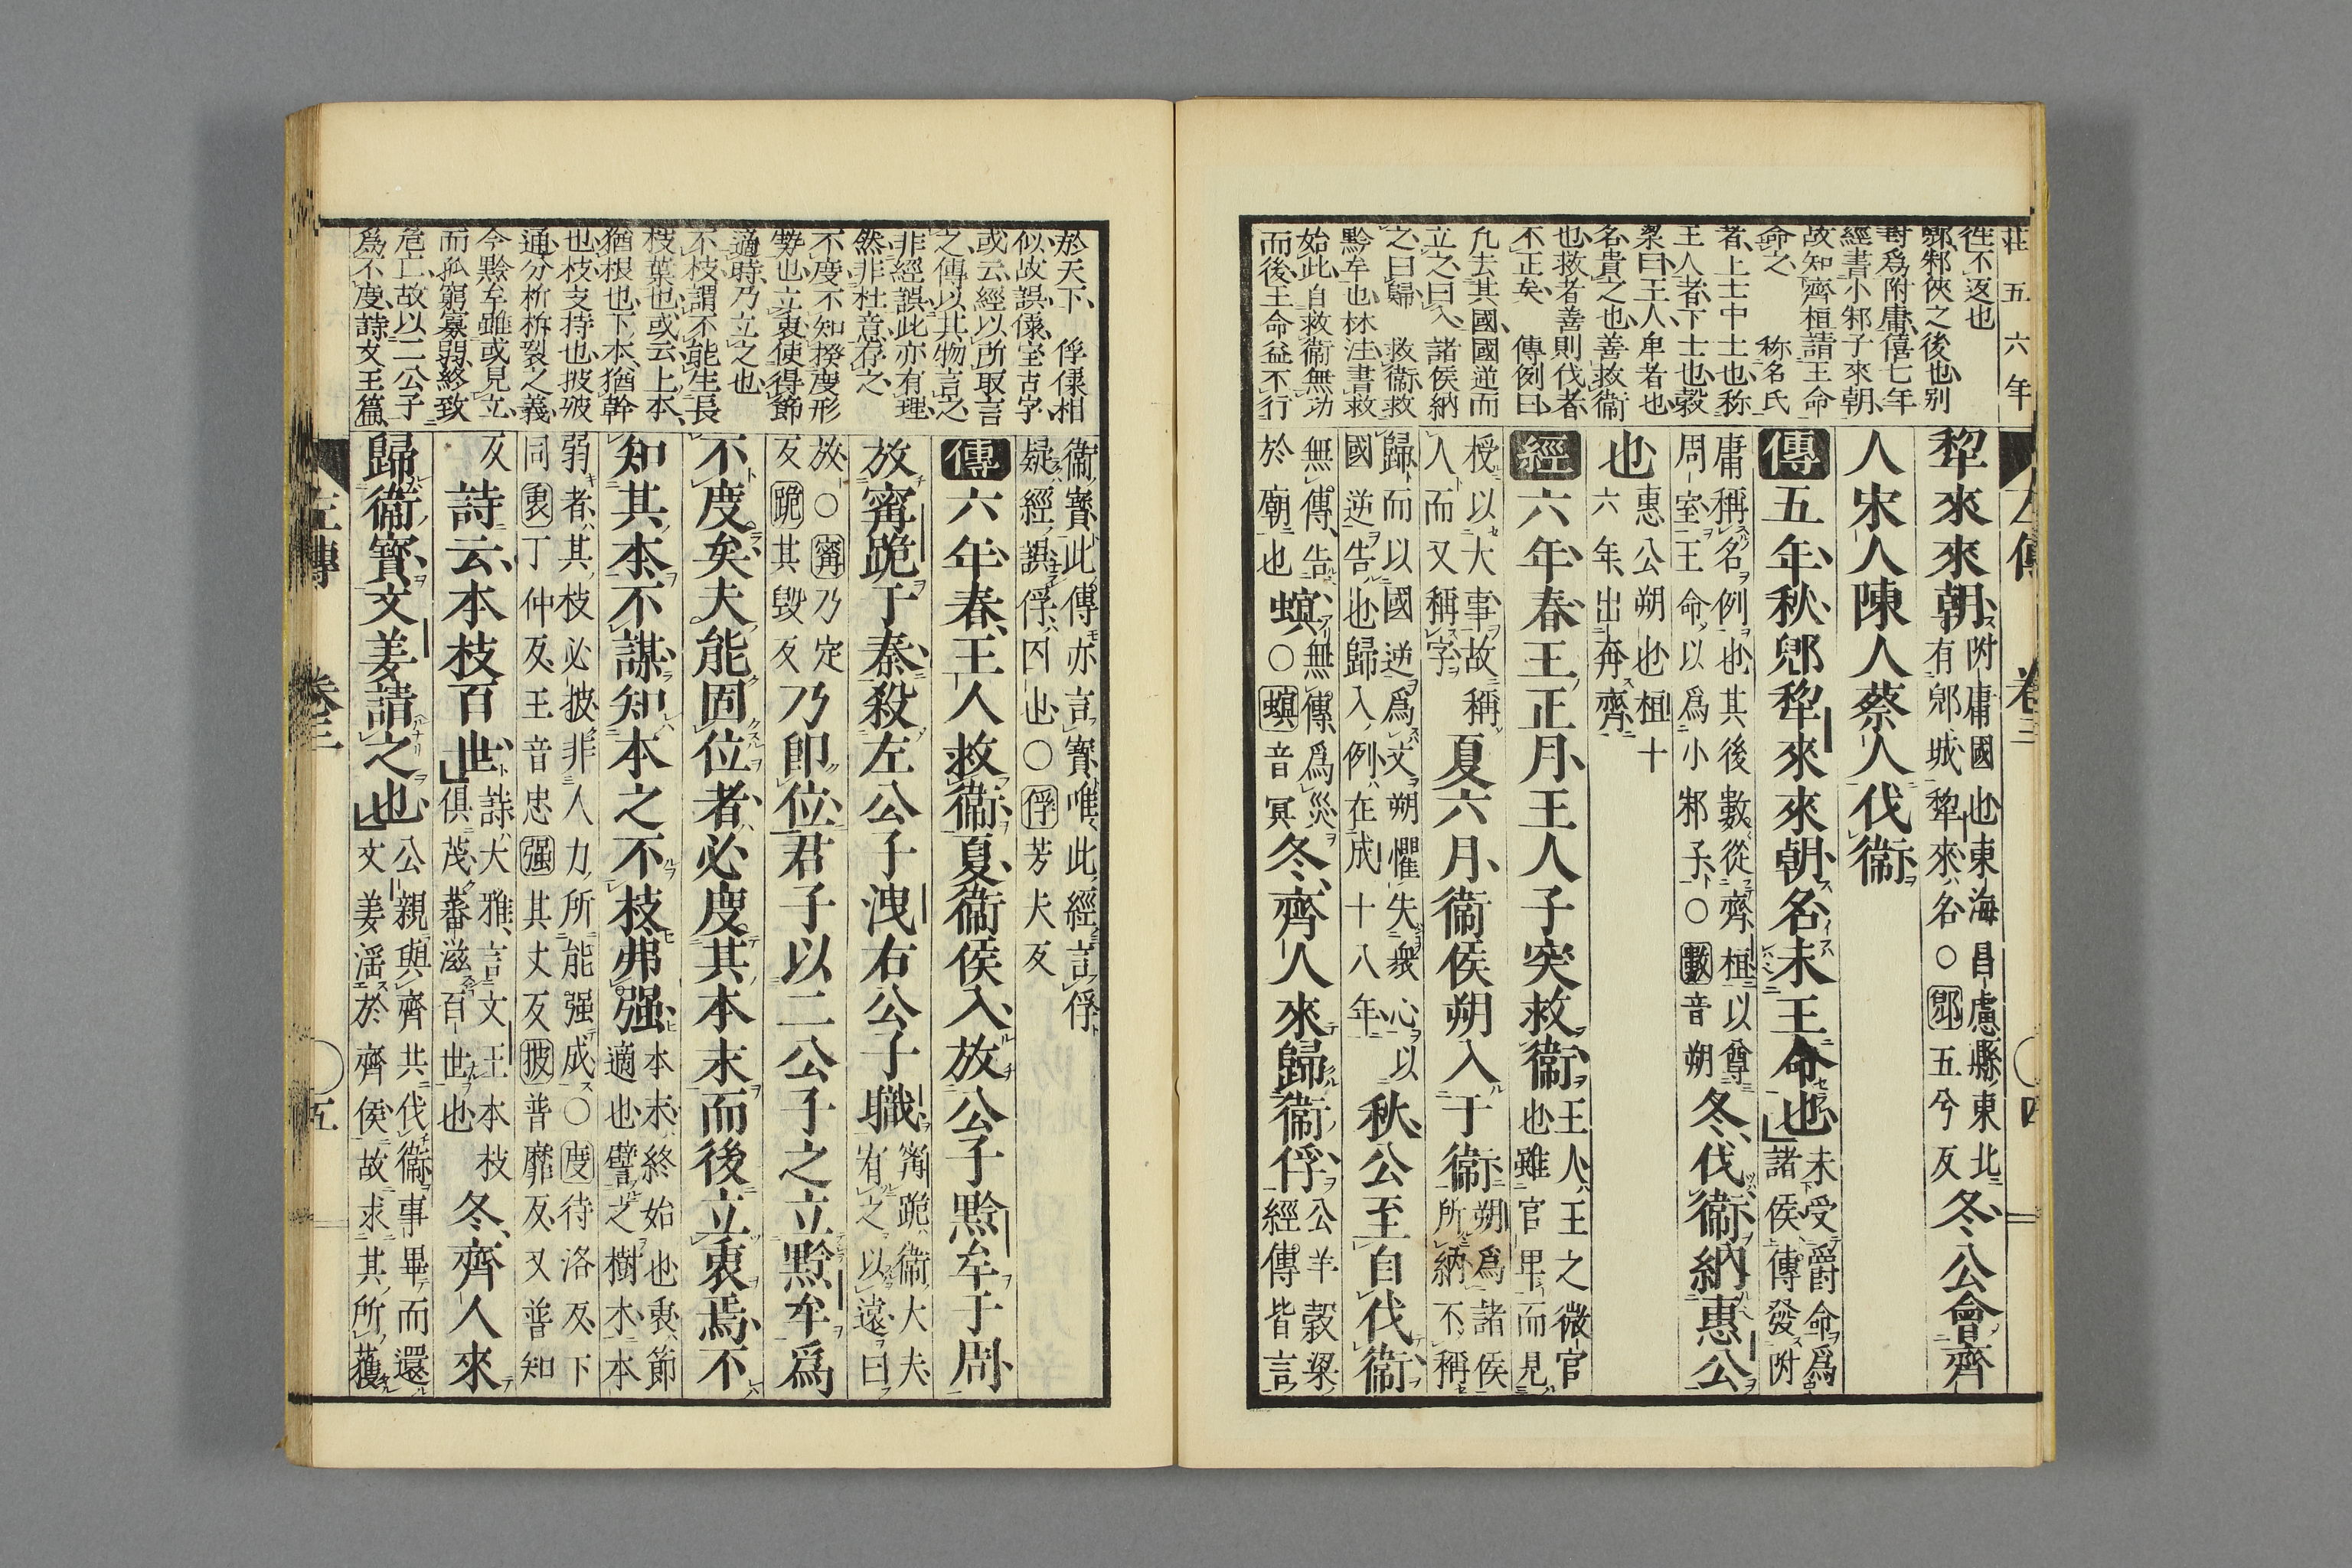 莊五六年
往不返也
郳邾俠之後也別
封爲附庸僖七年
經書小邾子來朝
故知齊桓請王命
命之　称名氏
者上士中士也称
王人者下士也穀
梁曰王人卑者也
名貴之也善救衞
也救者善則伐者
不正矣　傳例曰
凢去其國國逆而
立之曰入諸侯納
之曰歸　救衞救
黔牟也林注書救
始此自救衞無功
而後王命益不行
左傳　卷三　四
犂來來朝附庸國也東海昌慮縣東北有郳城犂來名○郳五兮反冬公會齊
人宋人陳人蔡人伐衞
傳五年秋郳犂來來朝名未王命也未受爵命爲諸侯傳發附
庸稱名例也其後數從齊桓以尊周室王命以爲小邾子○數音朔冬伐衞納惠公
也惠公朔也桓十六年出奔齊
經六年春王正月王人子突救衞王人王之微官也雖官卑而見
授以大事故稱人而又稱字夏六月衞侯朔入于衞朔爲諸侯所納不稱
歸而以國逆爲文朔懼失衆心以國逆告也歸入例在成十八年秋公至自伐衞
無傳告於廟也螟無傳爲災○螟音冥冬齊人來歸衞俘公羊穀梁經傳皆言
於天下　俘㑥相
似故誤㑥宝古字
或云經以所取言
之傳以其物言之
非經誤此亦有理
然非杜意存之
不度不知揆度形
勢也立衷使得節
適時乃立之也
不枝謂不能生長
枝葉也或云上本
猶根也下本猶幹
也枝支持也披破
通分析柝裂之義
今黔牟雖或見立
而孤窮寡弱終致
危亡故以二公子
爲不度詩文王篇
衞寳此傳亦言寳唯此經言俘疑經誤俘囚也○俘芳夫反
傳六年春王人救衞夏衞侯入放公子黔牟于周
放甯跪于秦殺左公子洩右公子職甯跪衞大夫宥之以遠曰
放○甯乃定反跪其毀反乃卽位君子以二公子之立黔牟爲
不度矣夫能固位者必度其本末而後立衷焉不
知其本不謀知本之不枝弗强本末終始也衷節適也譬之樹木本
弱者其枝必披非人力所能强成○度待洛反下同衷丁仲反王音忠强其丈反披普靡反又普知
反詩云本枝百世詩大雅言文王本枝俱茂蕃滋百世也冬齊人來
歸衞寳文姜請之也公親與齊共伐衞事畢而還文姜淫於齊侯故求其所獲
左傳　卷三　五